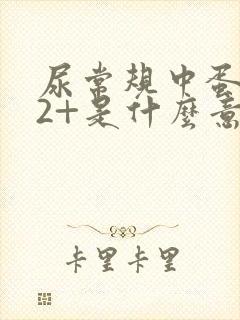 尿常规中蛋
2+是什麼意
卡里卡里